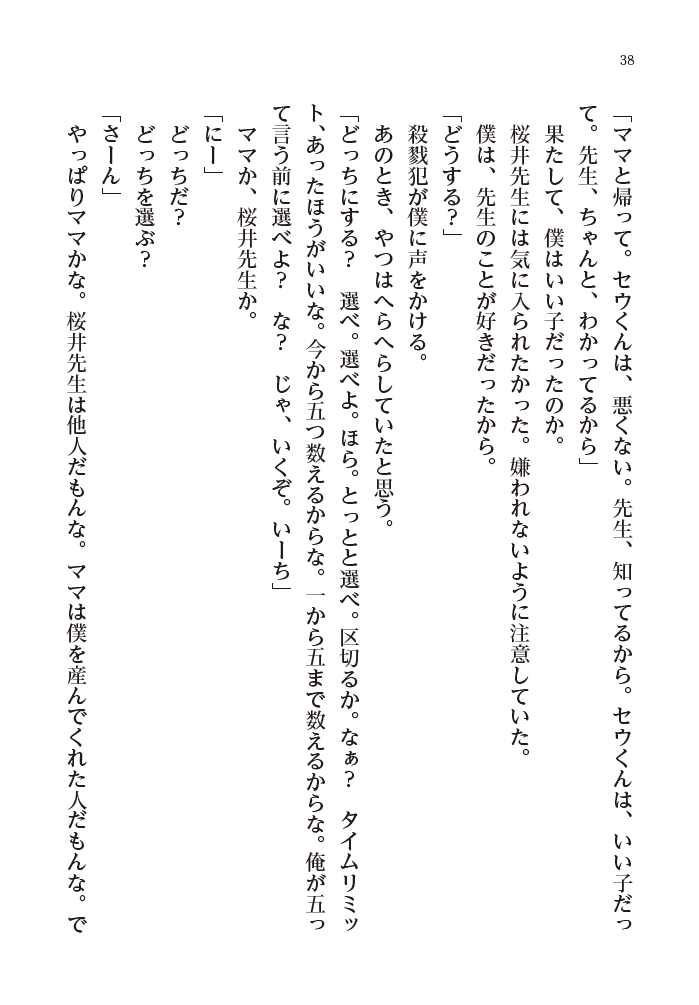 38
「ママと帰って。セウくんは、悪くない。先生、知ってるから。セウくんは、いい子だっ
て。先生、ちゃんと、わかってるから」
果たして、僕はいい子だったのか。
桜井先生には気に入られたかった。嫌われないように注意していた。
僕は、先生のことが好きだったから。
「どうする？」
殺戮犯が僕に声をかける。
あのとき、やつはへらへらしていたと思う。
「どっちにする？　選べ。選べよ。ほら。とっとと選べ。区切るか。なぁ？　タイムリミッ
ト、あったほうがいいな。今から五つ数えるからな。一から五まで数えるからな。俺が五っ
て言う前に選べよ？　な？　じゃ、いくぞ。いーち」
ママか、桜井先生か。
「にー」
どっちだ？
どっちを選ぶ？
「さーん」
やっぱりママかな。桜井先生は他人だもんな。ママは僕を産んでくれた人だもんな。で